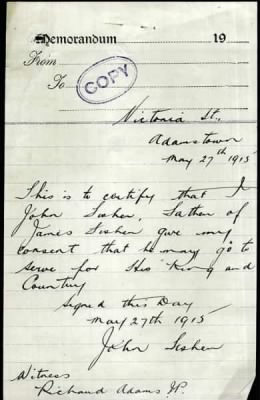 Memorandum 19
From
To
COPY
Victoria St.,
Adamstown
May 27th 1915
This is to certify that I
John Fisher, Father of
James Fisher give my
consent that he may go to
serve for His King and
Country
Signed this Day
May 27th 1915
John Fisher
Witness
Richard Adams J.P.